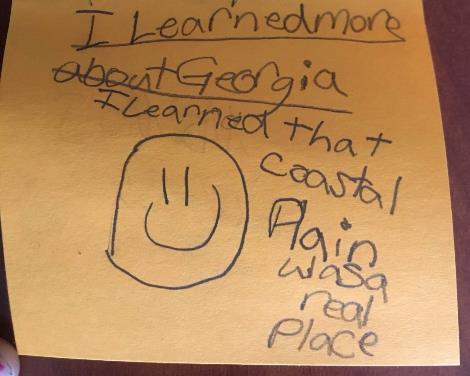 I Learned more
about Georgia
I Learned that
coastal
Plain
was a
real
place